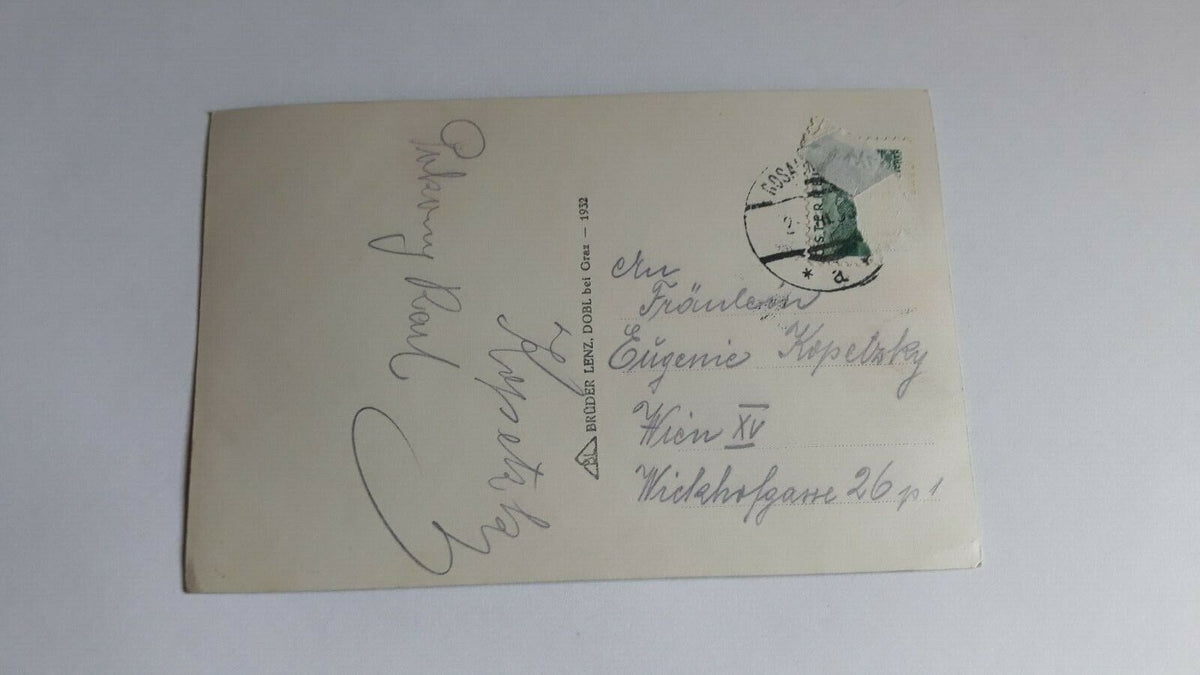 Karl
BL BRÜDER LENZ, DOBL bei Graz — 1932
GOSA
ÖSTERR
* a
An
Fräulein
Eugenie Kopetzky
Wien XV
Wickhofgasse 26 p 1